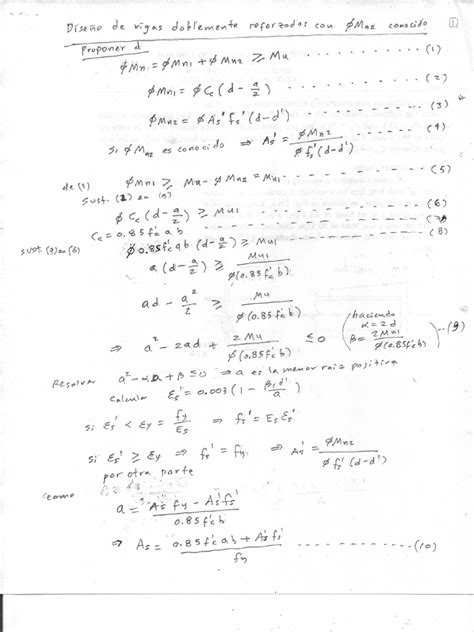 Diseño de vigas doblemente reforzadas con ϕMn2 conocido ①
Proponer d
ϕMn = ϕMn1 + ϕMn2 ≥ Mu - - - - - - - (1)
ϕMn1 = ϕCc(d - a/2) - - - - - - - (2)
ϕMn2 = ϕAs'fs'(d-d') - - - - - - - (3)
Si ϕMn2 es conocido ⇒ As' = ϕMn2/ϕfs'(d-d') - - - - (4)
de (1) ϕMn1 ≥ Mu - ϕMn2 = Mu1 - - - - - - - (5)
Sust. (2) en (5)
ϕCc(d - a/2) ≥ Mu1 - - - - - - - (6)
Cc = 0.85f'c ab - - - - - - - (7)
sust (7) en (6) ϕ0.85f'c ab(d - a/2) ≥ Mu1 - - - - - - - (8)
a(d - a/2) ≥ Mu1/ϕ(0.85f'c b)
ad - a²/2 ≥ Mu/ϕ(0.85f'c b)
⇒ a² - 2ad + 2Mu/ϕ(0.85f'c b) ≤ 0 (haciendo α = 2d β = 2Mu1/ϕ(0.85f'c b)) -- (9)
Resolver a² - αa + β ≤ 0 ⇒ a es la menor raiz positiva
Calcular εs' = 0.003(1 - β1d'/a)
si εs' < εy = fy/Es ⇒ fs' = Es εs'
si εs' ≥ εy ⇒ fs' = fy ⇒ As' = ϕMn2/ϕfs'(d-d')
por otra parte
como
a = As fy - As'fs'/0.85f'c b
⇒ As = 0.85f'c ab + As'fs'/fy - - - - - - - (10)